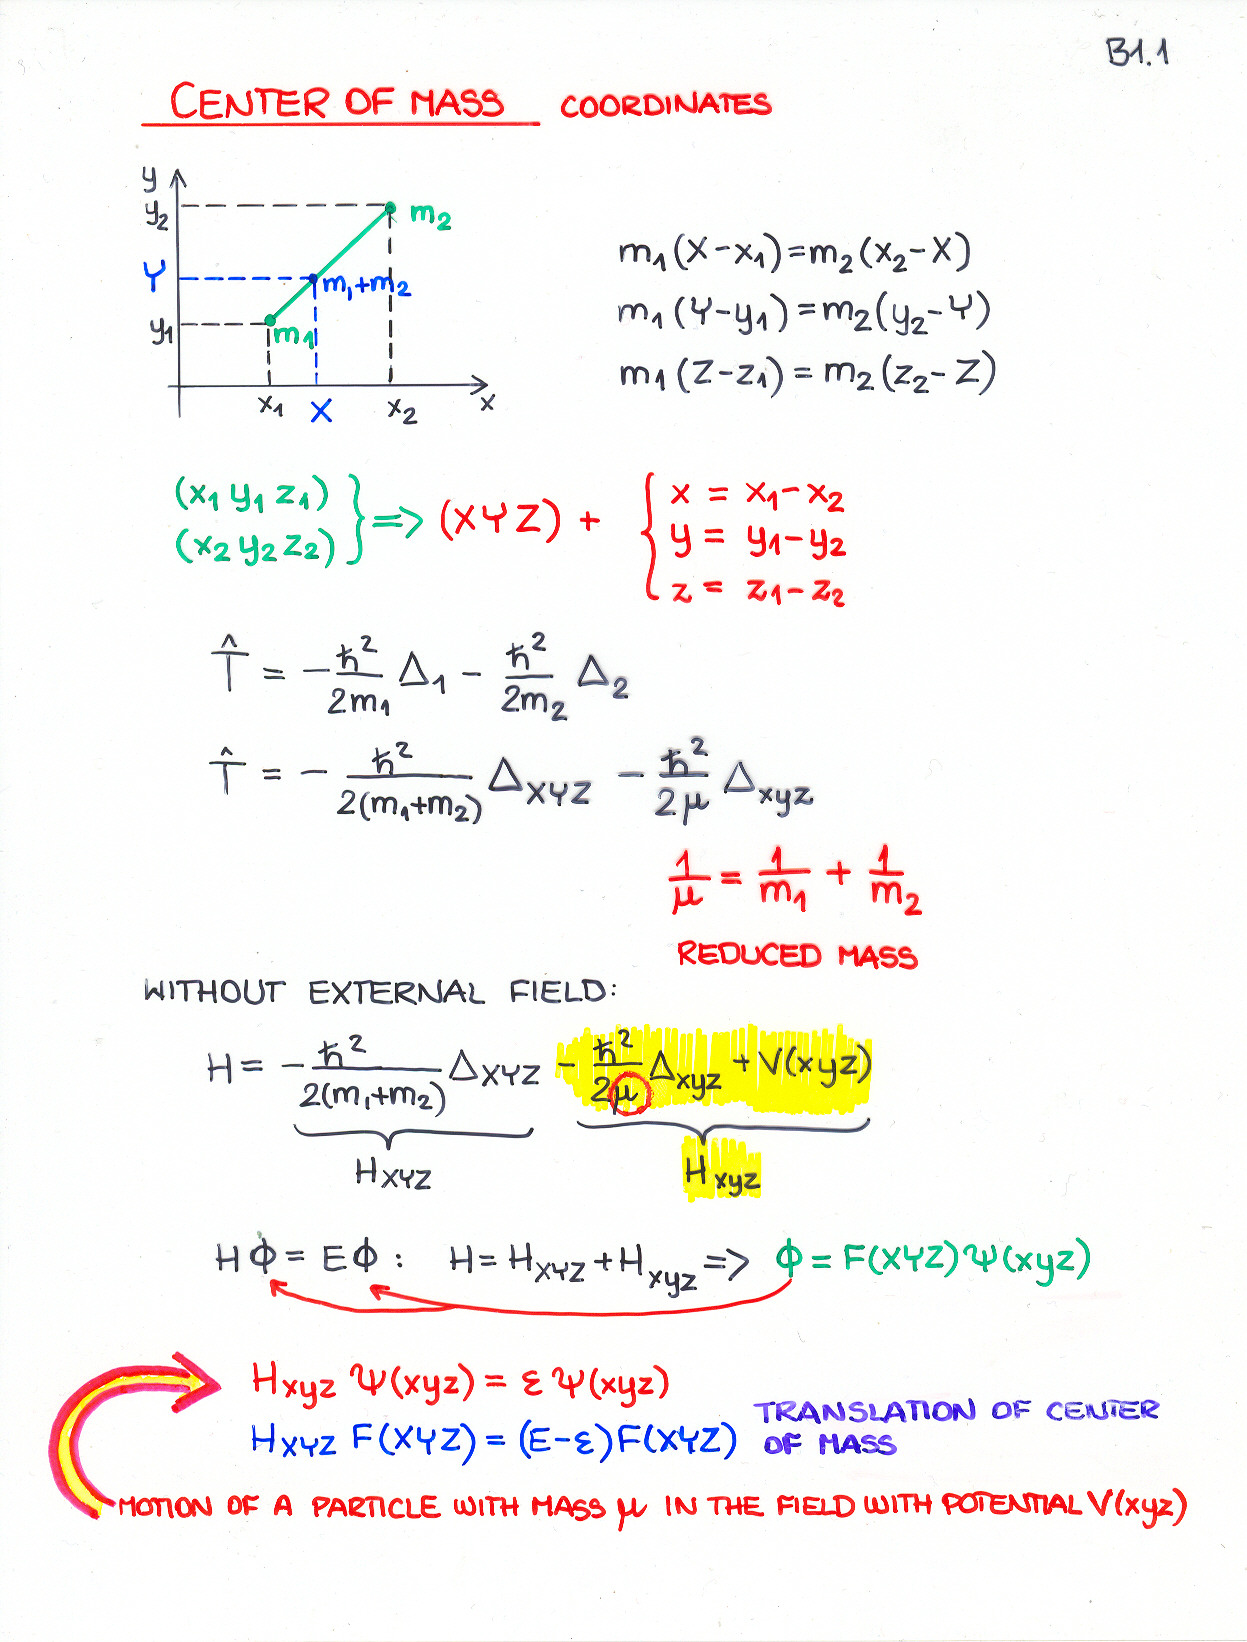 B1.1
CENTER OF MASS COORDINATES
y
y₂
m₂
Y
m₁+m₂
y₁
m₁
x₁ X x₂ x
m₁(X-x₁)=m₂(x₂-X)
m₁(Y-y₁)=m₂(y₂-Y)
m₁(Z-z₁)=m₂(z₂-Z)
(x₁ y₁ z₁)
(x₂ y₂ z₂) } => (XYZ) + {
x = x₁-x₂
y = y₁-y₂
z = z₁-z₂
T̂ = -ħ²/2m₁ Δ₁ - ħ²/2m₂ Δ₂
T̂ = - ħ²/2(m₁+m₂) Δ_XYZ - ħ²/2μ Δ_xyz
1/μ = 1/m₁ + 1/m₂
REDUCED MASS
WITHOUT EXTERNAL FIELD:
H = - ħ²/2(m₁+m₂) Δ_XYZ - ħ²/2μ Δ_xyz + V(xyz)
H_XYZ H_xyz
HΦ = EΦ : H = H_XYZ + H_xyz => Φ = F(XYZ)Ψ(xyz)
H_xyz Ψ(xyz) = ε Ψ(xyz)
H_XYZ F(XYZ) = (E-ε)F(XYZ)
TRANSLATION OF CENTER
OF MASS
MOTION OF A PARTICLE WITH MASS μ IN THE FIELD WITH POTENTIAL V(xyz)